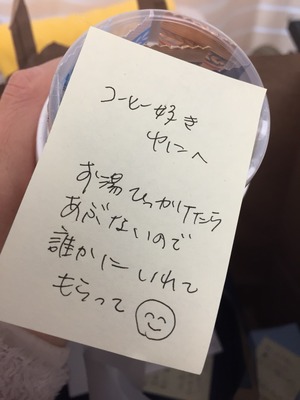 コーヒー好き
やにへ
お湯ひっかけたら
あぶないので
誰かにいれて
もらって